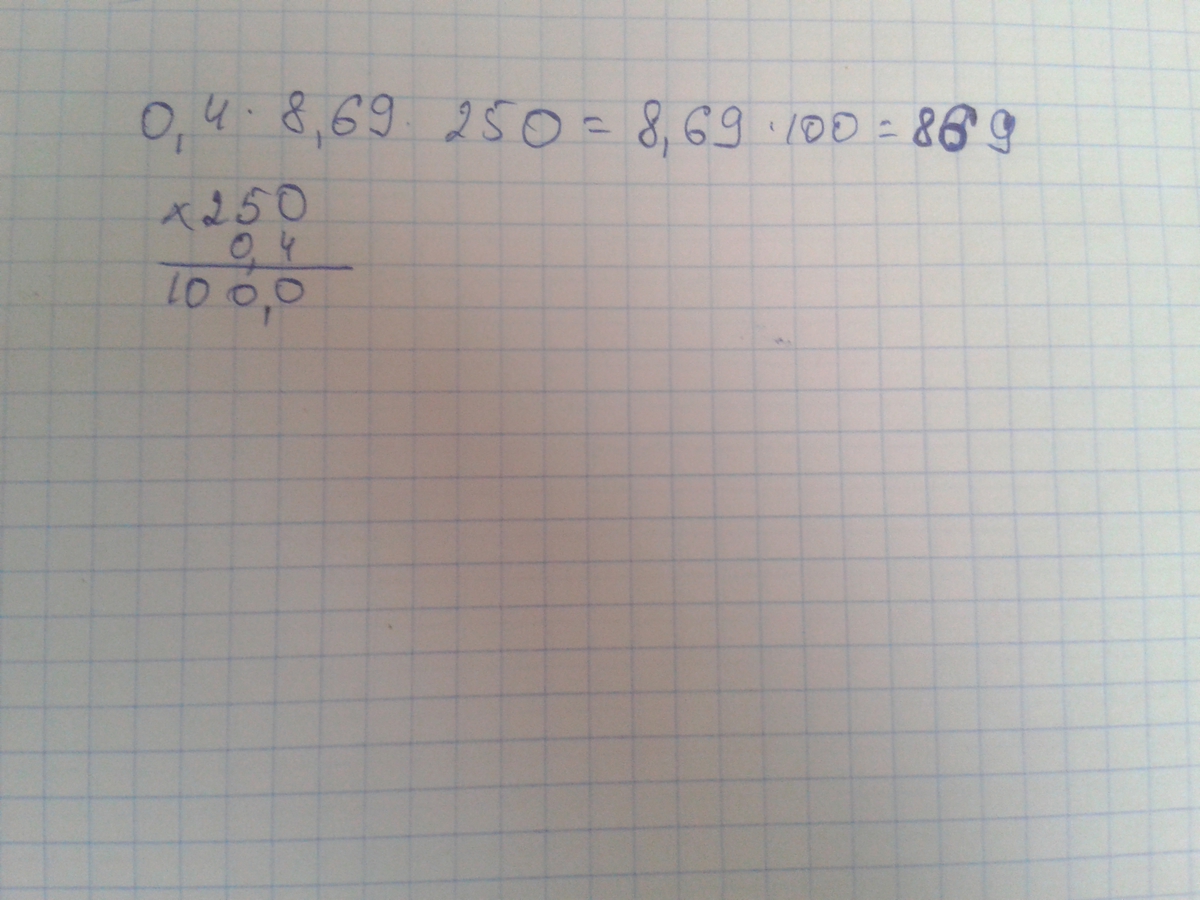 0,4 · 8,69 · 250 = 8,69 · 100 = 869
×250
0,4
100,0